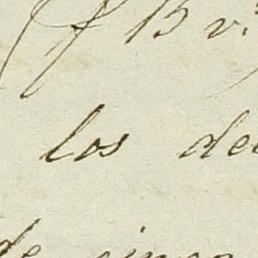 (f 15 v.
los de
de cinco